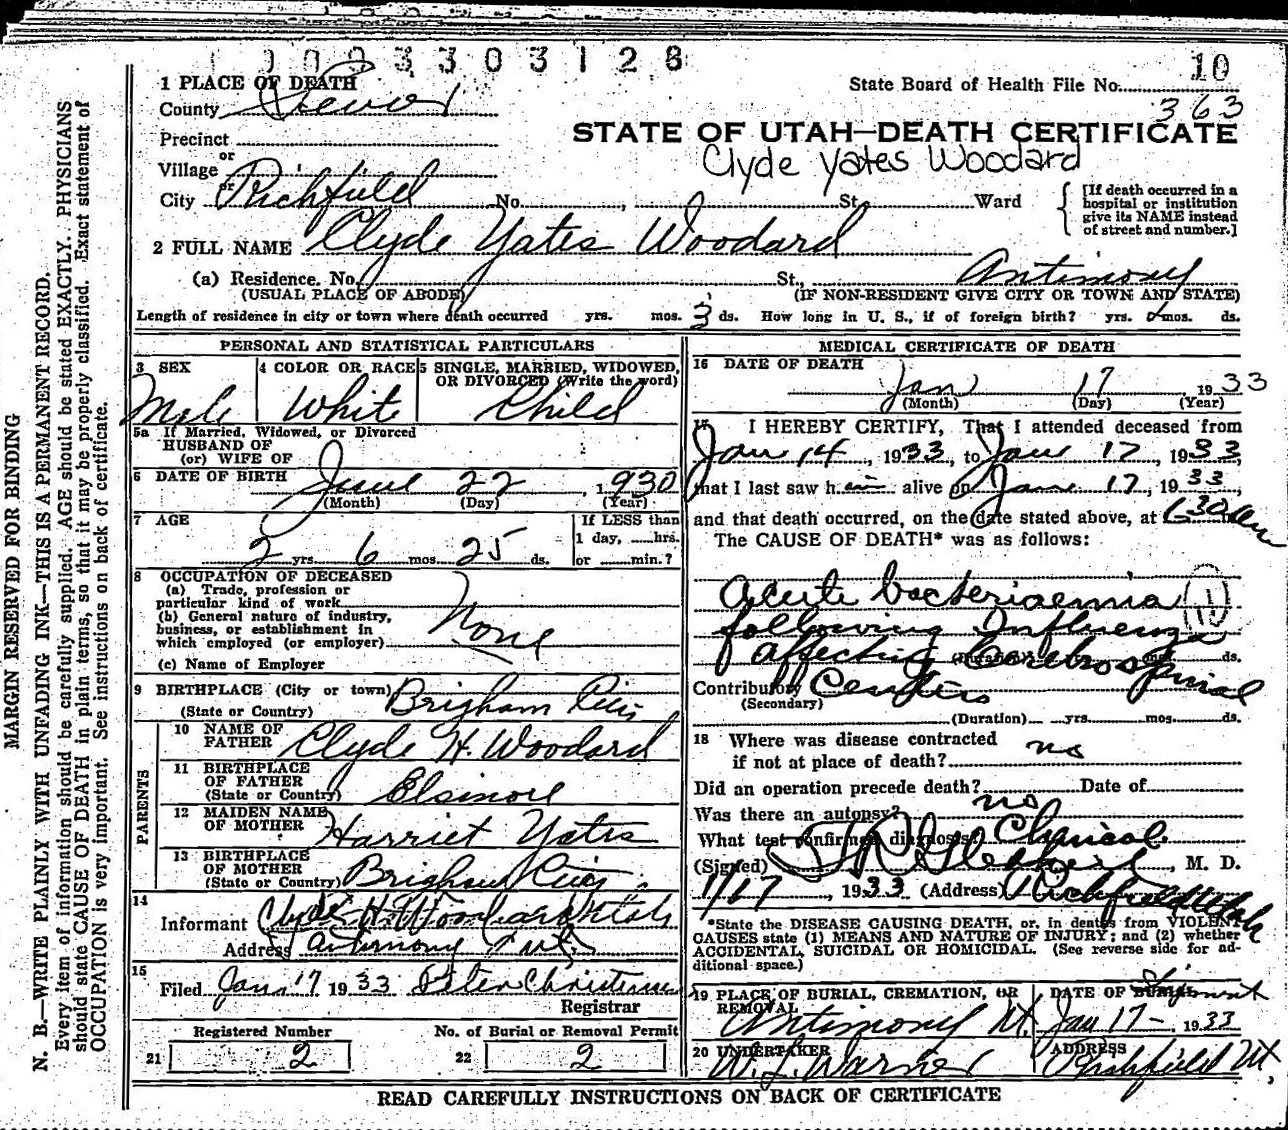 0093303128
10
1 PLACE OF DEATH
State Board of Health File No.
363
County Sevier
STATE OF UTAH—DEATH CERTIFICATE
Precinct
or
Clyde Yates Woodard
Village
or
City Richfield No. , St. Ward
[If death occurred in a hospital or institution give its NAME instead of street and number.]
2 FULL NAME Clyde Yates Woodard
(a) Residence. No. St., Antimony
(USUAL PLACE OF ABODE) (IF NON-RESIDENT GIVE CITY OR TOWN AND STATE)
Length of residence in city or town where death occurred yrs. mos. 3 ds. How long in U. S., if of foreign birth? yrs. mos. ds.
PERSONAL AND STATISTICAL PARTICULARS
3 SEX 4 COLOR OR RACE 5 SINGLE, MARRIED, WIDOWED, OR DIVORCED (Write the word)
Male White Child
5a If Married, Widowed, or Divorced
HUSBAND OF
(or) WIFE OF
6 DATE OF BIRTH June 22, 1930
(Month) (Day) (Year)
7 AGE
2 yrs 6 mos 25 ds.
If LESS than
1 day, hrs.
or min.?
8 OCCUPATION OF DECEASED
(a) Trade, profession or
particular kind of work
(b) General nature of industry,
business, or establishment in
which employed (or employer)
None
(c) Name of Employer
9 BIRTHPLACE (City or town) Brigham City
(State or Country)
PARENTS
10 NAME OF FATHER Clyde H. Woodard
11 BIRTHPLACE OF FATHER (State or Country) Elsinore
12 MAIDEN NAME OF MOTHER Harriet Yates
13 BIRTHPLACE OF MOTHER (State or Country) Brigham City
14
Informant Clyde H. Woodard
Address Antimony Utah
15
Filed Jan 17 1933 Peter Christensen
Registrar
Registered Number No. of Burial or Removal Permit
21 2 22 2
MEDICAL CERTIFICATE OF DEATH
16 DATE OF DEATH
Jan 17 1933
(Month) (Day) (Year)
17 I HEREBY CERTIFY, That I attended deceased from
Jan 14, 1933, to Jan 17, 1933,
that I last saw him alive on Jan 17, 1933,
and that death occurred, on the date stated above, at 630
The CAUSE OF DEATH* was as follows:
Acute bacteriaemia
following Influenza
affecting Cerebrospinal
(Duration) ds.
Contributory Centers
(Secondary)
(Duration) yrs. mos. ds.
18 Where was disease contracted
if not at place of death? no
Did an operation precede death? Date of
Was there an autopsy? no
What test confirmed diagnosis? Clinical
(Signed) , M. D.
1/17, 1933 (Address) Richfield Utah
*State the DISEASE CAUSING DEATH, or, in deaths from VIOLENT
CAUSES state (1) MEANS AND NATURE OF INJURY; and (2) whether
ACCIDENTAL, SUICIDAL OR HOMICIDAL. (See reverse side for ad-
ditional space.)
19 PLACE OF BURIAL, CREMATION, OR REMOVAL DATE OF BURIAL Shipment
Antimony Ut. Jan 17 - 1933
20 UNDERTAKER ADDRESS
W. L. Warner Richfield Ut,
READ CAREFULLY INSTRUCTIONS ON BACK OF CERTIFICATE
MARGIN RESERVED FOR BINDING
N. B.—WRITE PLAINLY WITH UNFADING INK—THIS IS A PERMANENT RECORD.
Every item of information should be carefully supplied. AGE should be stated EXACTLY. PHYSICIANS
should state CAUSE OF DEATH in plain terms, so that it may be properly classified. Exact statement of
OCCUPATION is very important. See instructions on back of certificate.